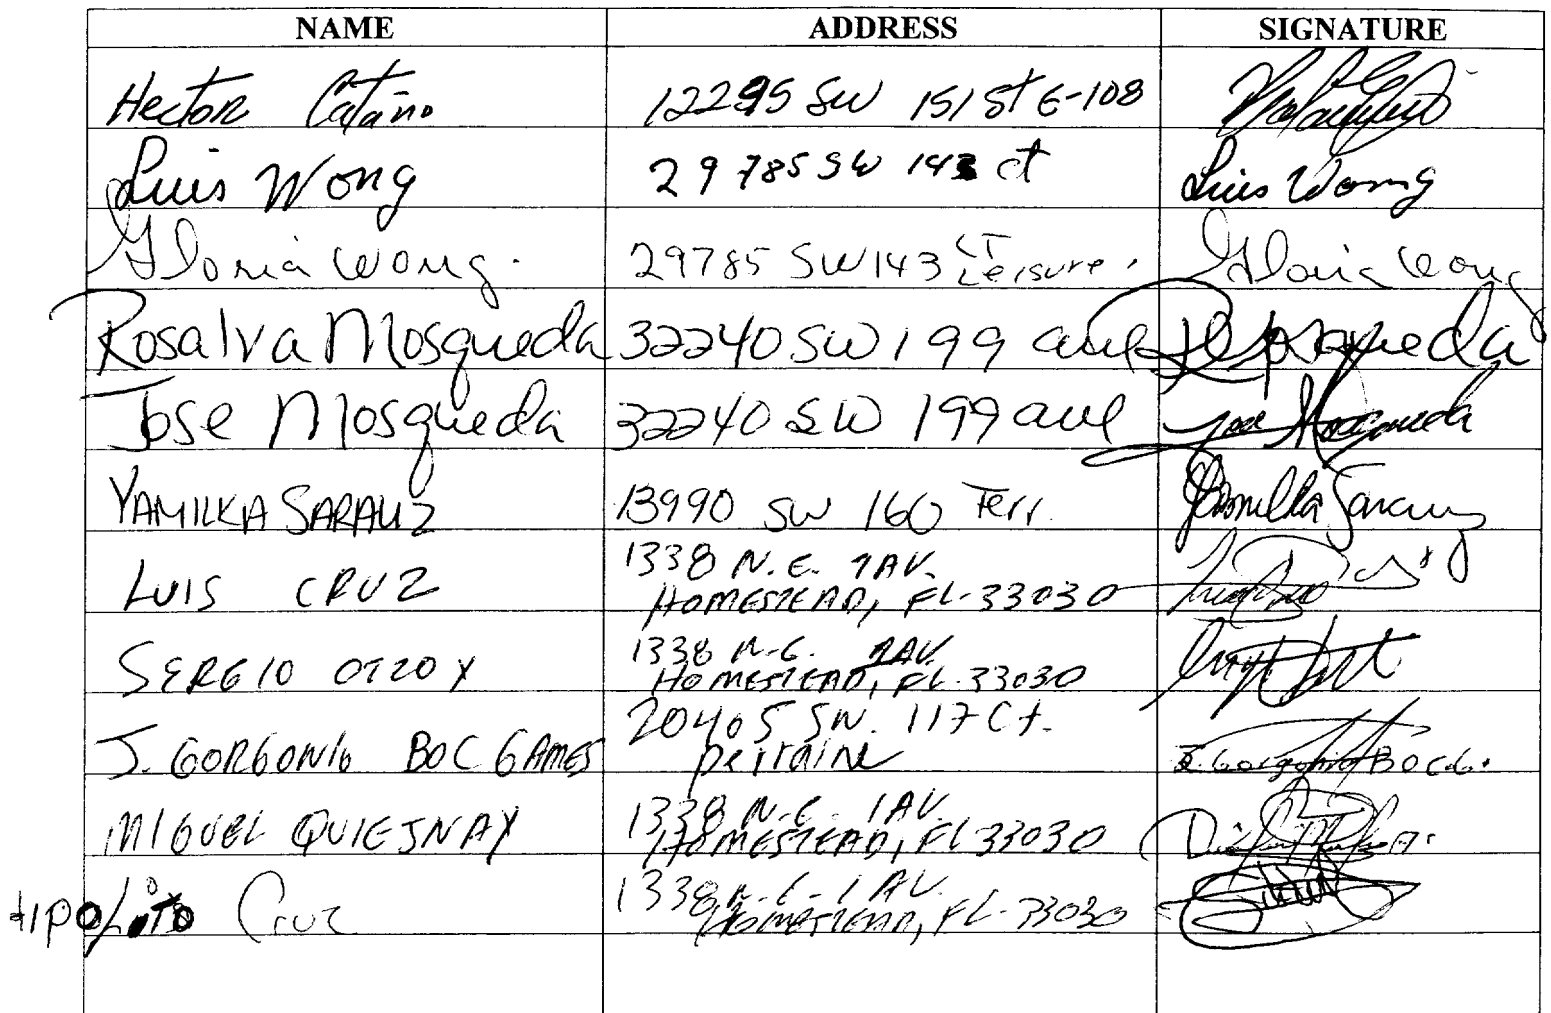 NAME ADDRESS SIGNATURE
Hector Cataño 12295 SW 151 St E-108
Luis Wong 29785 SW 143 ct Luis Wong
Gloria Wong. 29785 SW 143 CT Leisure. Gloria Wong
Rosalva Mosqueda 32240 SW 199 ave R Mosqueda
Jose Mosqueda 32240 SW 199 ave Jose Mosqueda
YAMILKA SARAUZ 13990 SW 160 Terr. Yamilka Sarauz
LUIS CRUZ 1338 N.E. 1AV.
HOMESTEAD, FL. 33030
SERGIO OTZOY 1338 N.E. 1AV.
HOMESTEAD, FL. 33030
J. GORGONIO BOC GAMES 20405 SW. 117 Ct.
perraine J. Gorgonio BOC.G.
MIGUEL QUIEJNAY 1338 N.E. 1AV.
HOMESTEAD, FL 33030
HIPOLITO Cruz 1338 N.E. 1 AV.
HOMESTEAD, FL. 33030